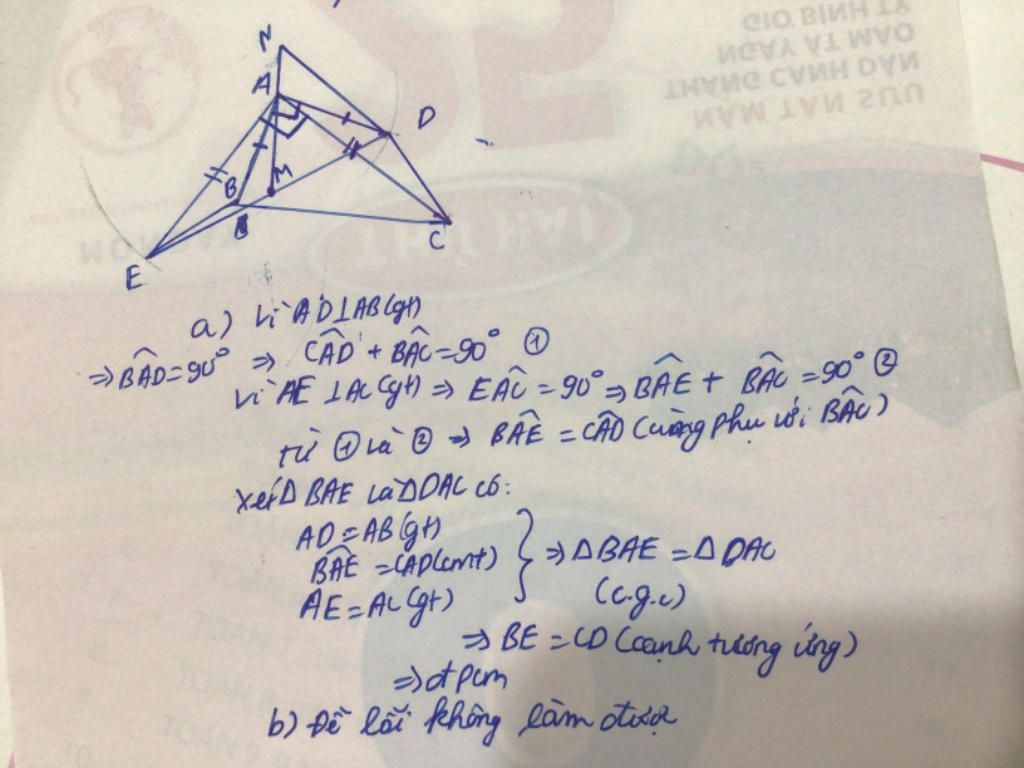 N
A
D
B
M
B
C
E
a) Vì AD⊥AB(gt)
⇒ BAD̂ = 90° ⇒ CAD̂ + BAĈ = 90° ①
Vì AE ⊥ AC(gt) ⇒ EAĈ = 90° ⇒ BAÊ + BAĈ = 90° ②
từ ① và ② ⇒ BAÊ = CAD̂ (cùng phụ với BAĈ)
Xét Δ BAE và Δ DAC có:
AD = AB(gt)
BAÊ = CAD(cmt) } ⇒ Δ BAE = Δ DAC
AE = AC(gt) (c.g.c)
⇒ BE = CD (cạnh tương ứng)
⇒ đpcm
b) Đề lỗi không làm được
GIỜ BÍNH TÝ
NGÀY ẤT MÃO
THÁNG CANH DẦN
NĂM TÂN SỬU
THỨ HAI